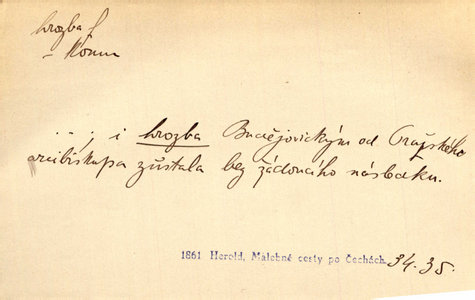 hrozba f.
– Nomin
...; i hrozba Budějovickým od Pražského
arcibiskupa zůstala bez žádoucího následku.
1861 Herold, Malebné cesty po Čechách. 34.35.